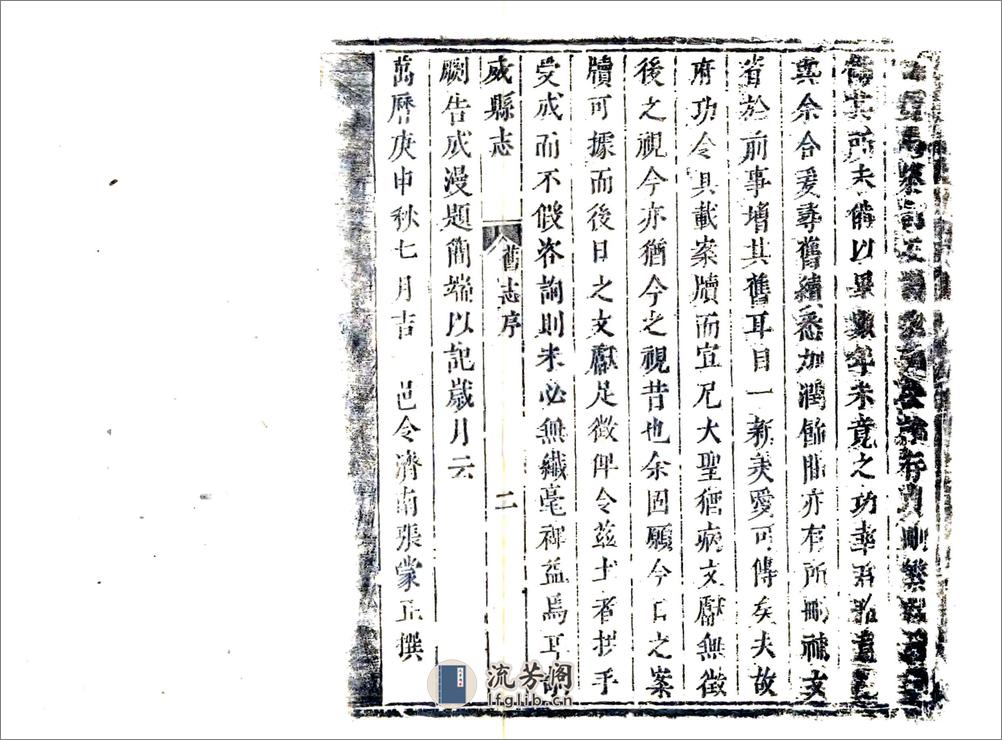 其所未備以畢數年未竟之功
與余合爰尋舊續悉加潤餙間亦有所刪補文
省於前事增其舊耳目一新美愛可傳矣夫故
府功令具載案牘而宣尼大聖猶病文獻無徵
後之視今亦猶今之視昔也余固願今日之案
牘可據而後日之文獻足徵俾令茲土者拱手
受成而不假咨詢則未必無纖毫裨益焉耳
威縣志
舊志序
二
劂告成漫題簡端以記歲月云
萬曆庚申秋七月吉 邑令濟南張蒙正撰
流芳阁
lfglib.cn